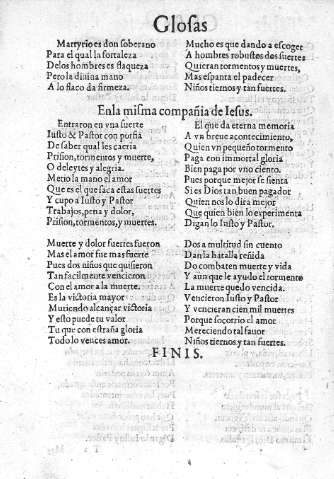 Glosas
Martyrio es don soberano
Para el qual la fortaleza
De los hombres es flaqueza
Pero la diuina mano
A lo flaco da firmeza.
Mucho es que dando a escoger
A hombres robustos dos suertes
Quieran tormentos y muertes,
Mas espanta el padecer
Niños tiernos y tan fuertes.
En la misma compañia de Iesus.
Entraron en vna suerte
Iusto & Pastor con porfia
De saber qual les caeria
Prision, tormentos y muerte,
O deleytes y alegria.
Metio la mano el amor
Que es el que saca estas suertes
Y cupo a Iusto y Pastor
Trabajos, pena y dolor,
Prision, tormentos, y muertes.
Muerte y dolor fuertes fueron
Mas el amor fue mas fuerte
Pues dos niños que quisieron
Tan facilmente vencieron
Con el amor a la muerte.
Es la victoria mayor
Muriendo alcançar victoria
Y esto puede tu valor
Tu que con estraña gloria
Todo lo vences amor.
El que da eterna memoria
A vn breue acontecimiento,
Quien vn pequeño tormento
Paga con immortal gloria
Bien paga por vno ciento.
Pues porque mejor se sienta
Si es Dios tan buen pagador
Quien nos lo dira mejor
Que quien bien lo experimenta
Digan lo Iusto y Pastor.
Dos a multitud sin cuento
Dan la batalla reñida
Do combaten muerte y vida
Y aunque le ayudo el tormento
La muerte quedo vencida.
Vencieron Iusto y Pastor
Y vencieran cien mil muertes
Porque socorrio el amor
Mereciendo tal fauor
Niños tiernos y tan fuertes.
FINIS.